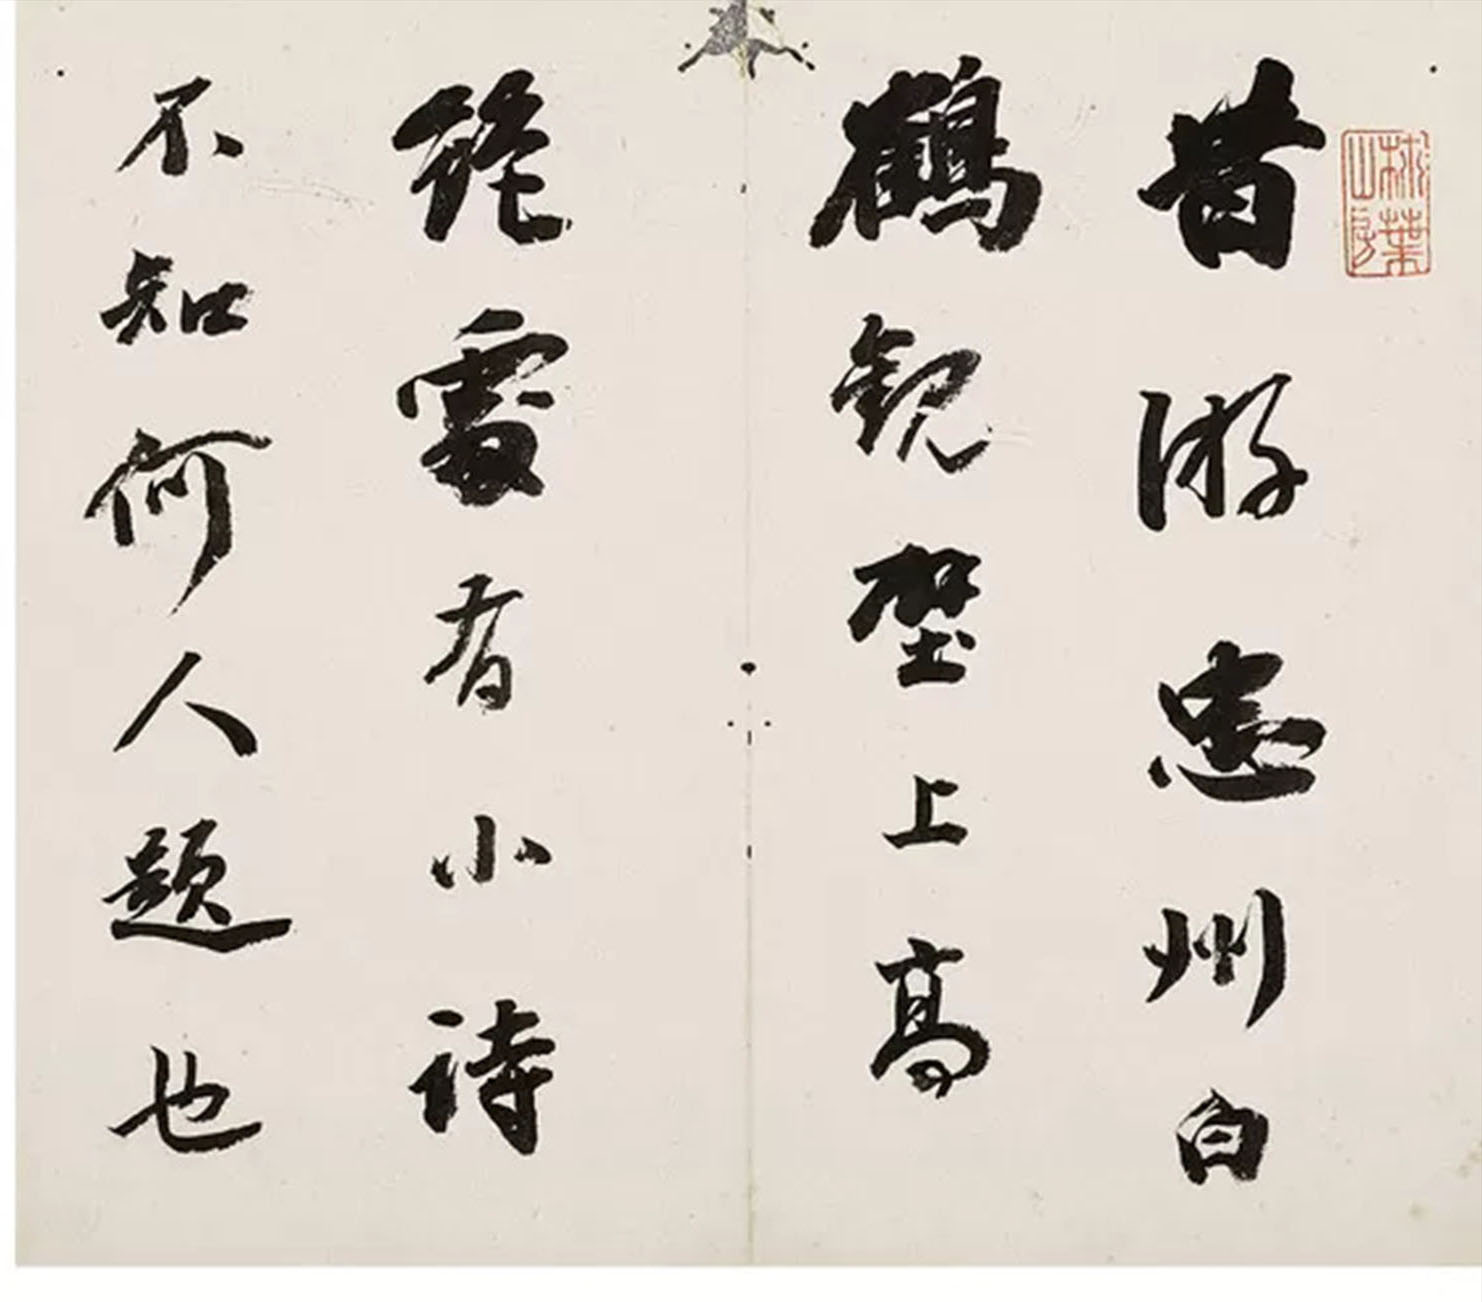 昔游忠州白
鶴觀壁上高
絕處有小詩
不知何人題也
葉山房